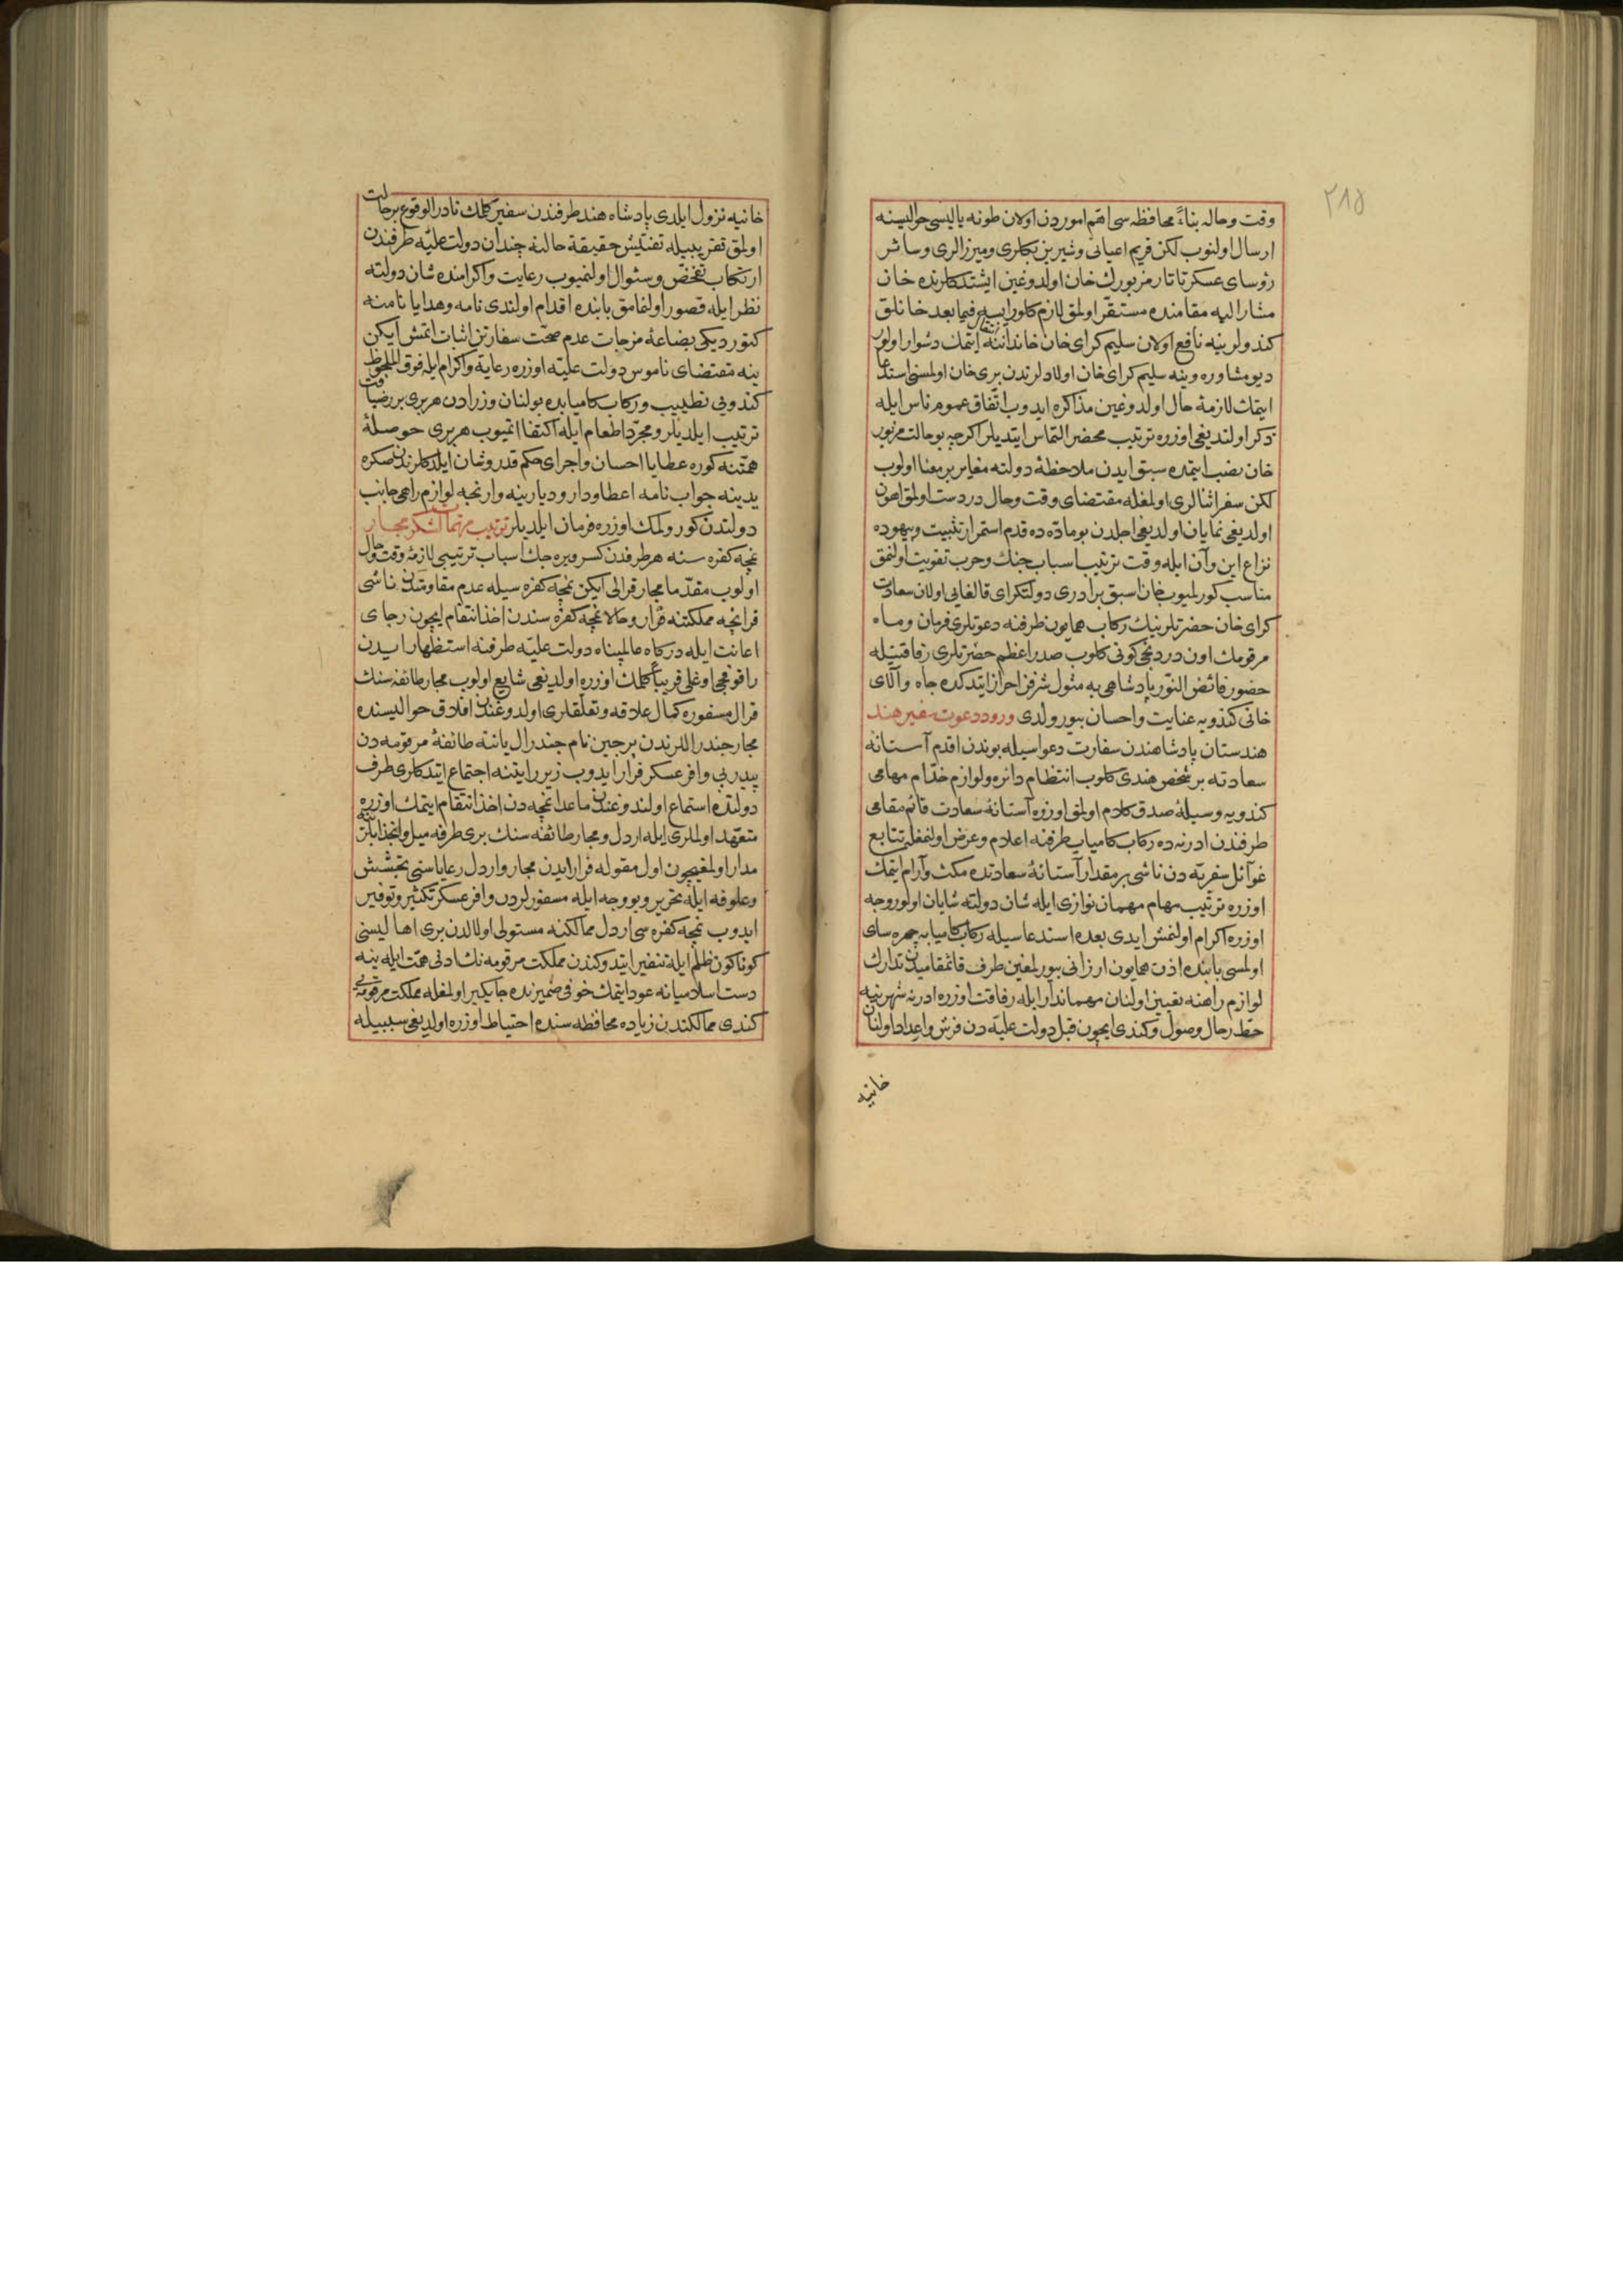 ٢١٥
وقت وحاله بناءً محافظه سی اهم اموردن اولان طونه یالیسی حوالیسنه
ارسال اولنوب لکن قریم اعیانی وشیرین بکلری ومیرزالری وسائر
رؤسای عسکر تاتار مزبورك خان اولدوغین ایشتدکلرنده خان
مشار الیه مقامنده مستقر اولمق لازم کلورایسه فیما بعد خانلق
کندولرینه نافع اولان سلیم کرای خان خانداننه ایتمك دشوار اولور
دیو مشاوره وینه سلیم کرای خان اولادلرندن بری خان اولمسنی استدعا
ایتمك لازمهٔ حال اولدوغین مذاکره ایدوب اتفاق عموم ناس ایله
ذکر اولندیغی اوزره ترتیب محضر التماس ایتدیلر اکرچه بو حالت مزبور
خان نصب ایتمده سبق ایدن ملاحظهٔ دولته مغایر بر معنا اولوب
لکن سفر اثنالری اولمغله مقتضای وقت وحال دردست اولمق اهون
اولدیغی نمایان اولدیغی اجلدن بو مادّه ده قدم استمرار تثبیت وبیهوده
نزاع این وآن ایله وقت ترتیب اسباب جنك وحرب تفویت اولنمق
مناسب کورلمیوب خان اسبق برادری دولتکرای قالغایی اولان سعادت
کرای خان حضرتلرینك رکاب همایون طرفنه دعوتلری فرمان وماه
مرقومك اون دردنجی کونی کلوب صدر اعظم حضرتلری رفاقتیله
حضور فائض النور پادشاهی یه مثول شرفن احراز ایتدکده جاه وآلای
خانی کندویه عنایت واحسان بیورولدی ورود دعوت سفیر هند
هندستان پادشاهندن سفارت دعواسیله بوندن اقدم آستانه
سعادته بر شخص هندی کلوب انتظام دائره ولوازم خدّام مهامی
کندویه وسیلهٔ صدق کلام اولمق اوزره آستانهٔ سعادت قائم مقامی
طرفندن ادرنه ده رکاب کامیاب طرفنه اعلام وعرض اولنمغله تتابع
غوائل سفریّه دن ناشی بر مقدار آستانهٔ سعادتده مکث وآرام ایتمك
اوزره ترتیب مهام مهمان نوازی ایله شان دولته شایان اولور وجه
اوزره اکرام اولنمش ایدی بعده استدعاسیله رکاب کامیابه چهره سای
اولمسی بابنده اذن همایون ارزانی بیورلمغین طرف قائمقامیدن تدارك
لوازم راهنه تعیین اولنان مهماندار ایله رفاقت اوزره ادرنه شهرینه
حط رحال وصول وکندی ایچون قبل دولت علیّه دن فرش واعداد اولنان
خانیه
خانیه نزول ایلدی پادشاه هند طرفندن سفیر کلمك نادر الوقوع بر حالت
اولمق تقریبیله تفتیش حقیقة حالنه چندان دولت علیّه طرفندن
ارتکاب تفحّص وسئوال اولنمیوب رعایت واکرامنده شان دولته
نظر ایله قصور اولنمامق بابنده اقدام اولندی نامه وهدایا نامنه
کتوردیکی بضاعهٔ مزجات عدم صحّت سفارتن اثبات اتمش ایکن
ینه مقتضای ناموس دولت علیّه اوزره رعایة واکرام ایله فوق الملحوظ
کندویی تطییب ورکاب کامیابده بولنان وزرادن هر بری بر ضیافت
ترتیب ایلدیلر ومجرّد اطعام ایله اکتفا اتمیوب هر بری حوصلهٔ
همّتنه کوره عطایا احسان واجرای حکم قدر وشان ایلدکلرندن صکره
یدینه جواب نامه اعطا ودار ودیارینه وارنجه لوازم راهی جانب
دولتدن کورولمك اوزره فرمان ایلدیلر ترتیب مهمات لشکر مجار
نمچه کفره سنه هر طرفدن کسر ویره جك اسباب ترتیبی لازمهٔ وقت وحال
اولوب مقدّما مجار قرالی ایکن نمچه کفره سیله عدم مقاومتدن ناشی
فرانچه مملکتنه فرار وحالا نمچه کفره سندن اخذ انتقام ایچون رجای
اعانت ایله درکاه عالمپناه دولت علیّه طرفنه استظهار ایدن
راقوفچی اوغلی قریباً کلمك اوزره اولدیغی شایع اولوب مجار طائفه سنك
قرال مسفوره کمال علاقه وتعلّقلری اولدوغندن افلاق حوالیسنده
مجار جندراللرندن برجین نام جندرال یاننه طائفهٔ مرقومه دن
پیدرپی وافر عسکر فرار ایدوب زیر رایتنه اجتماع ایتدکلری طرف
دولتده استماع اولندوغندن ماعدا نمچه دن اخذ انتقام ایتمك اوزره
متعهّد اولملری ایله اردل ومجار طائفه سنك بری طرفه میل وانجذابلرینه
مدار اولمغیچون اول مقوله فرار ایدن مجار واردل رعایاسنی بخشش
وعلوفه ایله تحریر وبو وجه ایله مسفورلردن وافر عسکر تکثیر وتوفیر
ایدوب نمچه کفره سی اردل ممالکنه مستولی اولالدن بری اهالیسنی
کوناکون ظلم ایله تنفیر ایتدوکندن مملکت مرقومه نك ادنی همّت ایله ینه
دست اسلامیانه عود ایتمك خوفی ضمیرنده جایکیر اولمغله مملکت مرقومه یی
کندی ممالکندن زیاده محافظه سنده احتیاط اوزره اولدیغی سببیله